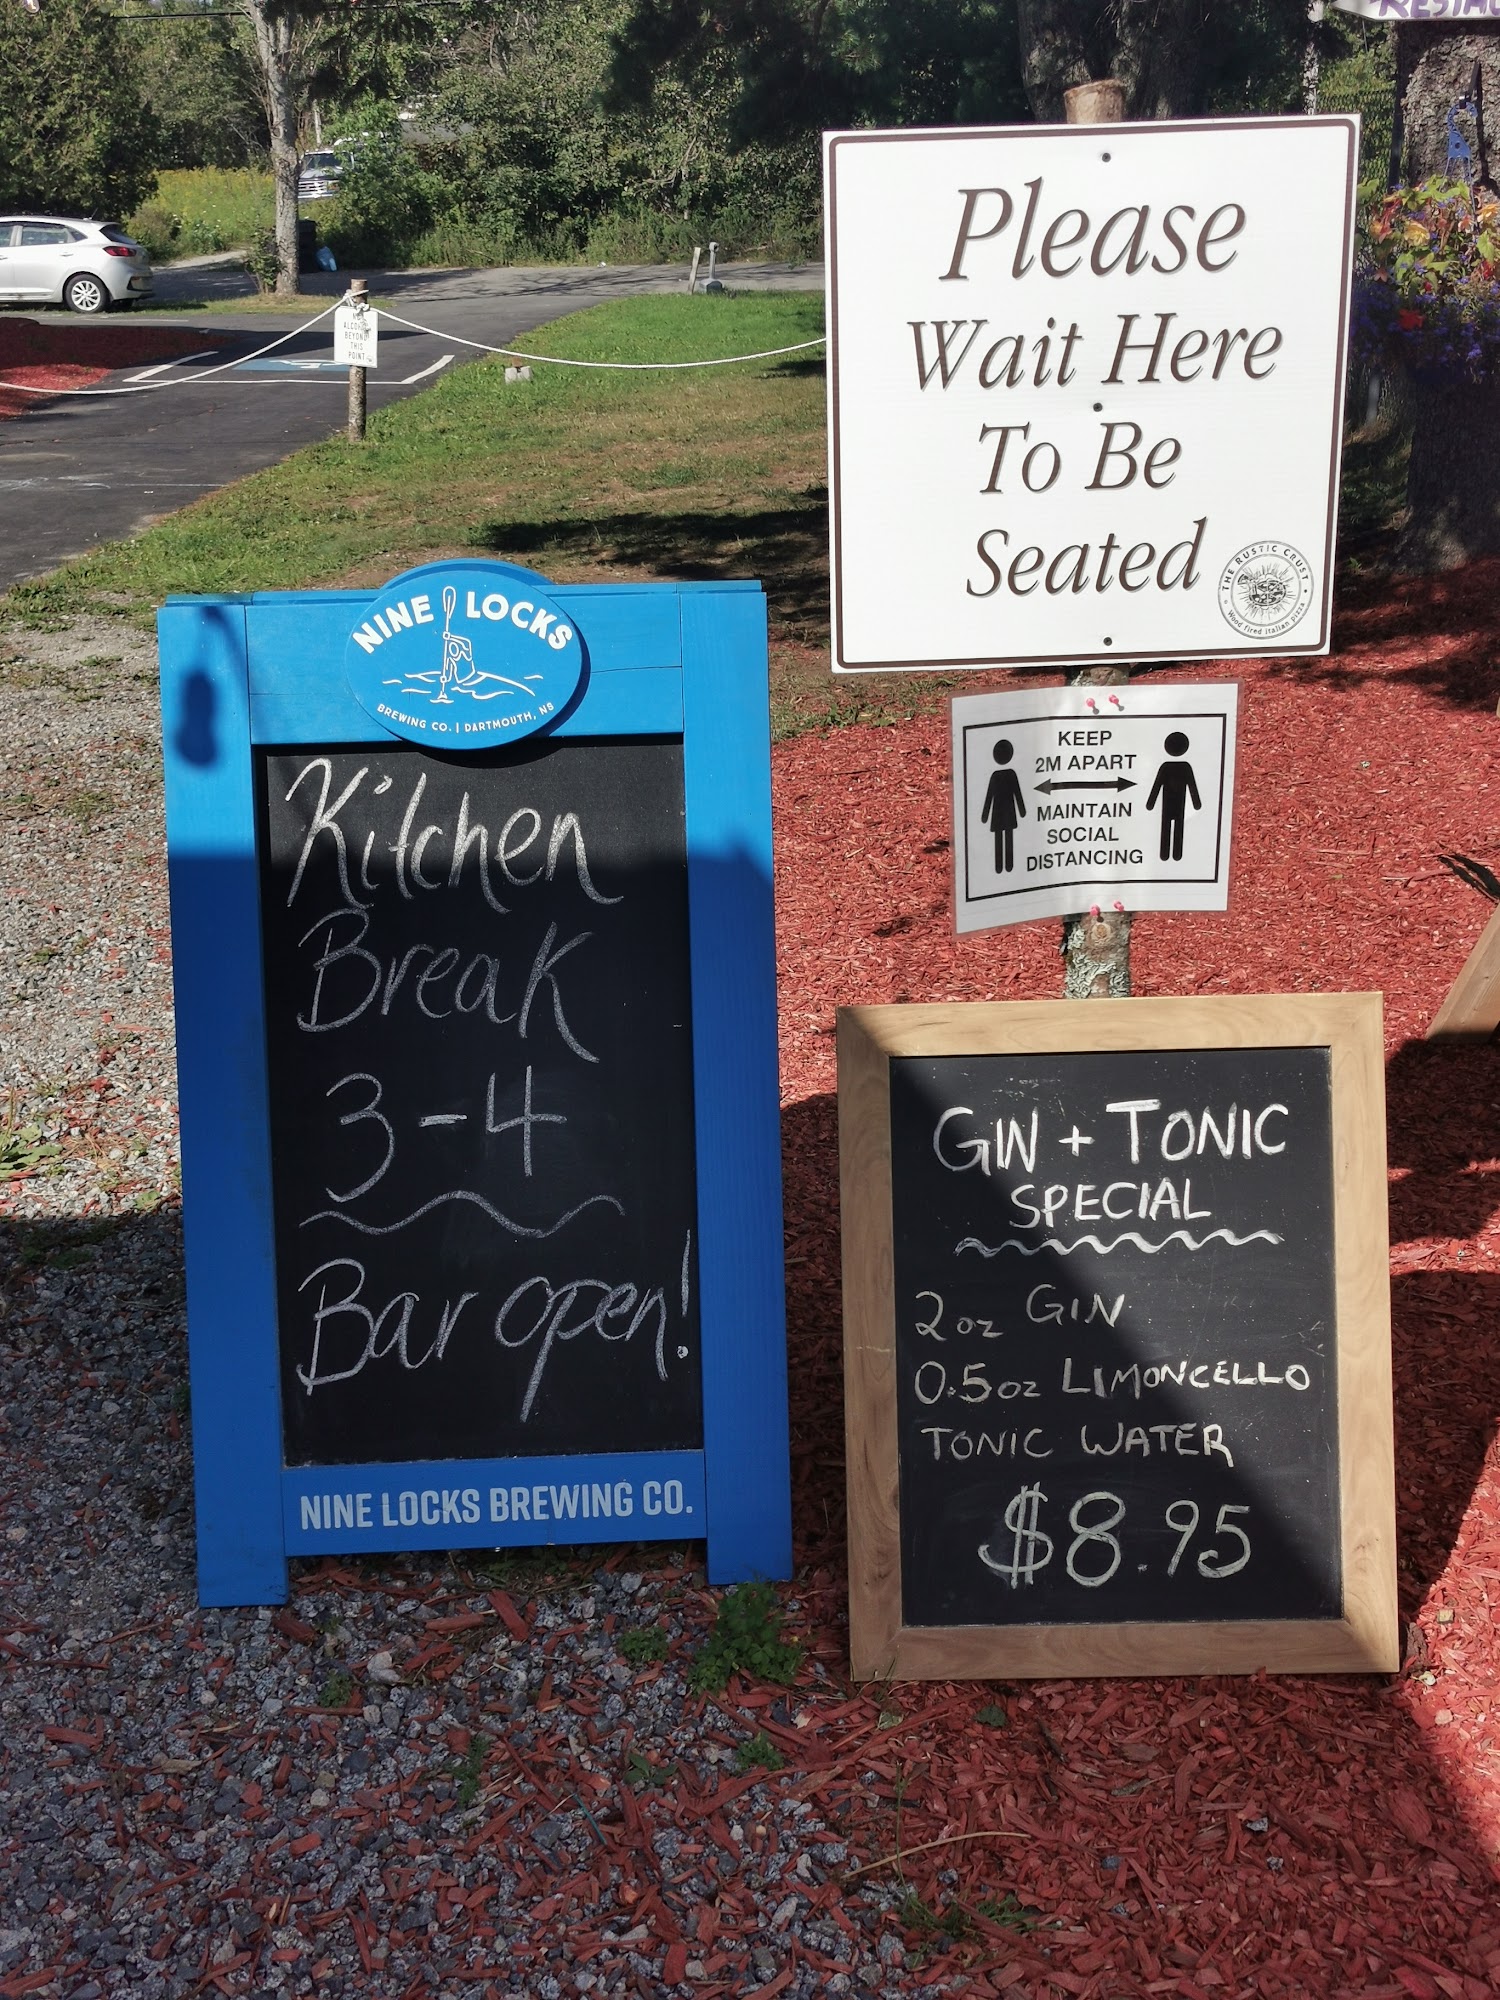 RESTAU
Please
Wait Here
To Be
Seated
THE RUSTIC CRUST
Wood fired Italian pizza
ALCOHOL
BEYOND
THIS
POINT
NINE LOCKS
BREWING CO. | DARTMOUTH, NS
Kitchen
Break
3-4
Bar open!
NINE LOCKS BREWING CO.
KEEP
2M APART
MAINTAIN
SOCIAL
DISTANCING
GIN + TONIC
SPECIAL
2oz GIN
0.5oz LIMONCELLO
TONIC WATER
$8.95